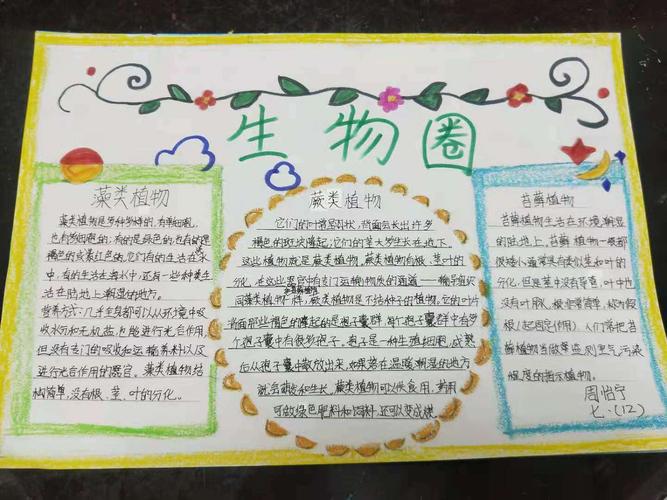 生物圈
藻类植物
藻类植物是多种多样的,有单细胞,
也有多细胞的;有的是绿色的,也有的是
褐色的或紫红色的。它们有的生活在水
中,有的生活在海水中,还有一些种类生
活在陆地上潮湿的地方。
营养方式:几乎全身都可以从环境中吸
收水分和无机盐,也能进行光合作用,
但没有专门的吸收和运输养料以及
进行光合作用的器官。藻类植物结
构简单,没有根、茎、叶的分化。
蕨类植物
它们的叶背面会长出许多
褐色的斑块隆起;它们的茎大多生长在地下。
这些植物就是蕨类植物。蕨类植物有根、茎、叶的
分化,在这些器官中有专门运输物质的通道——输导组织
同藻类植物一样,蕨类植物是不结种子的植物,它的叶片
背面那些褐色的隆起的是孢子囊群,每个孢子囊群中有多
个孢子囊中有很多孢子。孢子是一种生殖细胞,成熟
后从孢子囊中散放出来,如果落在温暖潮湿的地方
就会萌发和生长。蕨类植物可以供食用,药用
可做绿色肥料和饲料,还可以变成煤
苔藓植物
苔藓植物生活在环境潮湿
的陆地上,苔藓植物一般都
很矮小,通常具有类似茎和叶的
分化,但是茎中没有导管,叶中也
没有叶脉,根非常简单,称为假
根(起固定作用)。人们常把苔
藓植物当做监测空气污染
程度的指示植物。
周怡宁
七·(12)